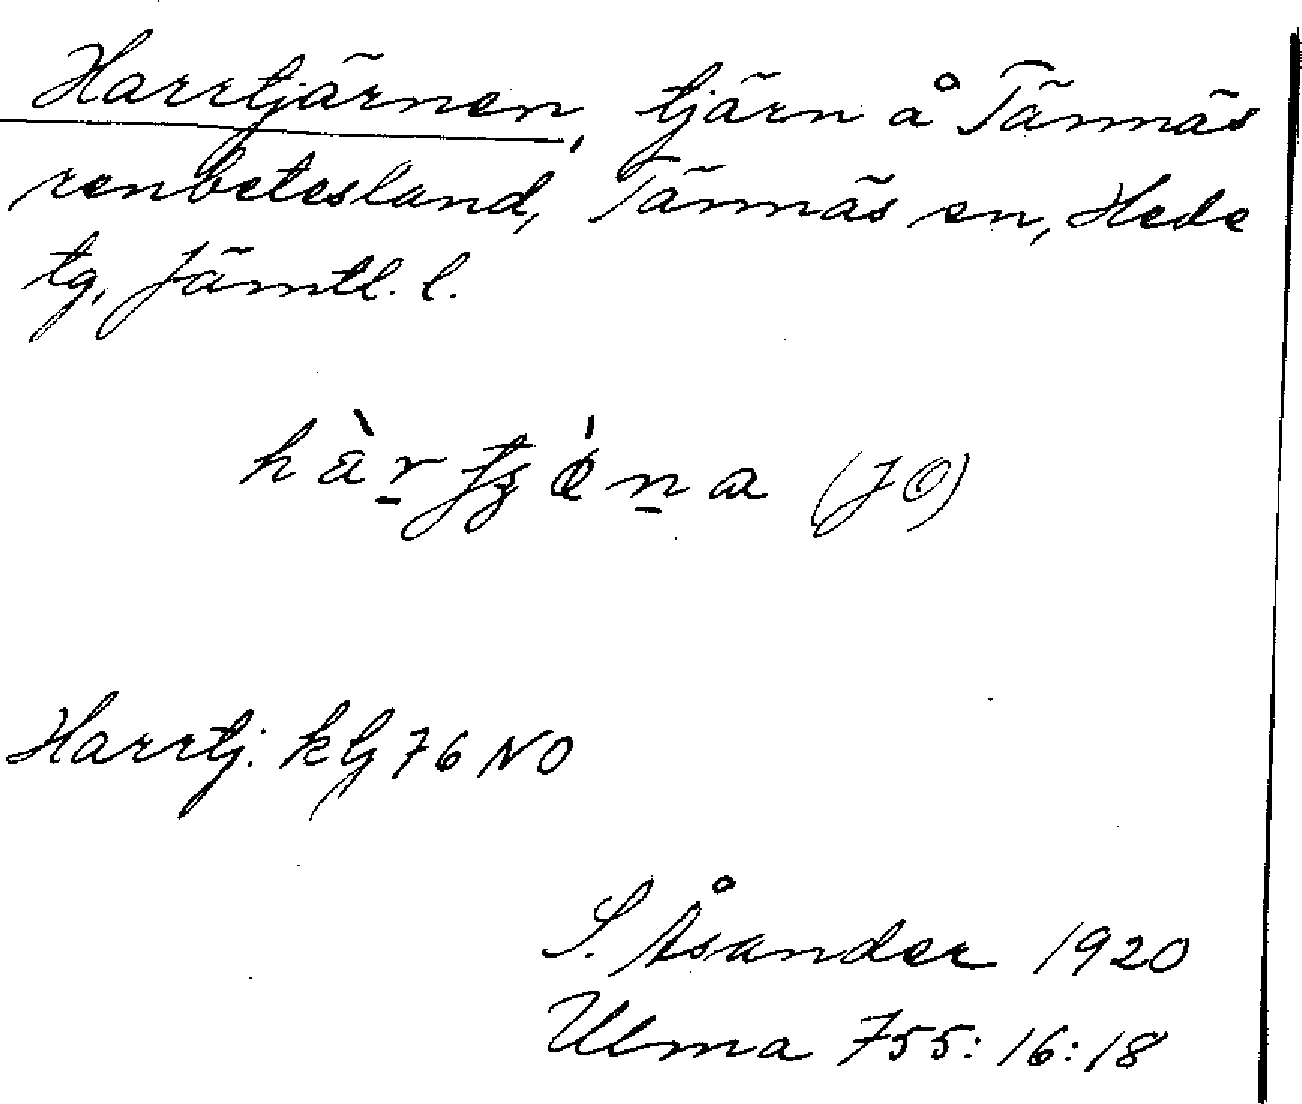 Harrtjärnen, tjärn å Tännäs
renbetesland, Tännäs sn, Hede
tg, Jämtl. l.
(JO)
Harrtj. kbl 76 NO
S. Åsander 1920
Ulma 755:16:18